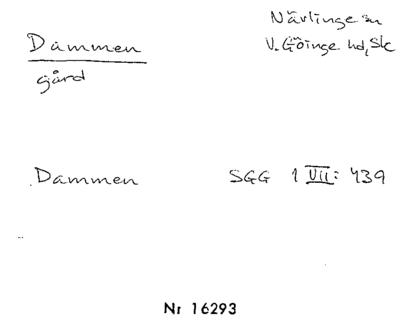 Dammen
gård
Nävlinge sn
V. Göinge hd, Sk
Dammen SGG 1 VII: 439
Nr 16293